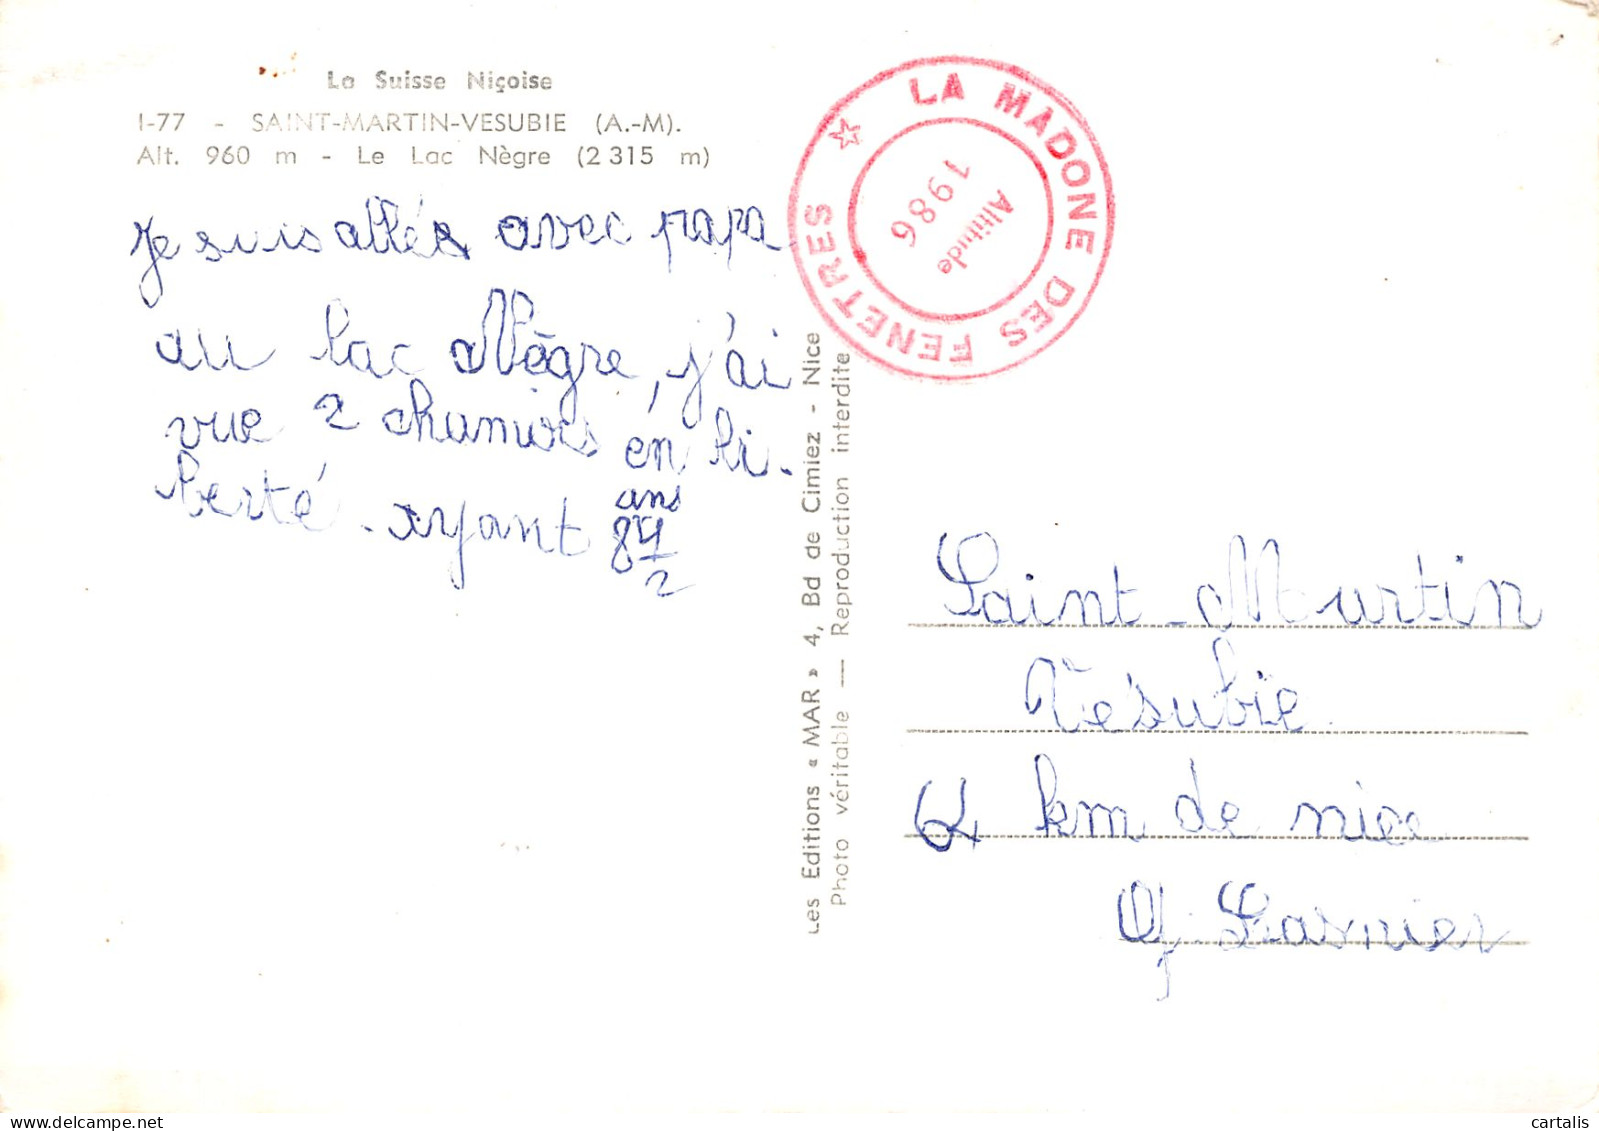 La Suisse Niçoise
I-77 - SAINT-MARTIN-VESUBIE (A.-M).
Alt. 960 m - Le Lac Nègre (2 315 m)
LA MADONE DES FENETRES ☆
Altitude
1986
je suis allés avec papa
au lac Nègre, j'ai
vue 2 chamois en li-
berté. ayant
ans
8
2
Les Editions « MAR » 4, Bd de Cimiez - Nice
Photo véritable — Reproduction interdite
Saint-Martin
Vésubie
64 km de nice
J. Lasnier
cartalis